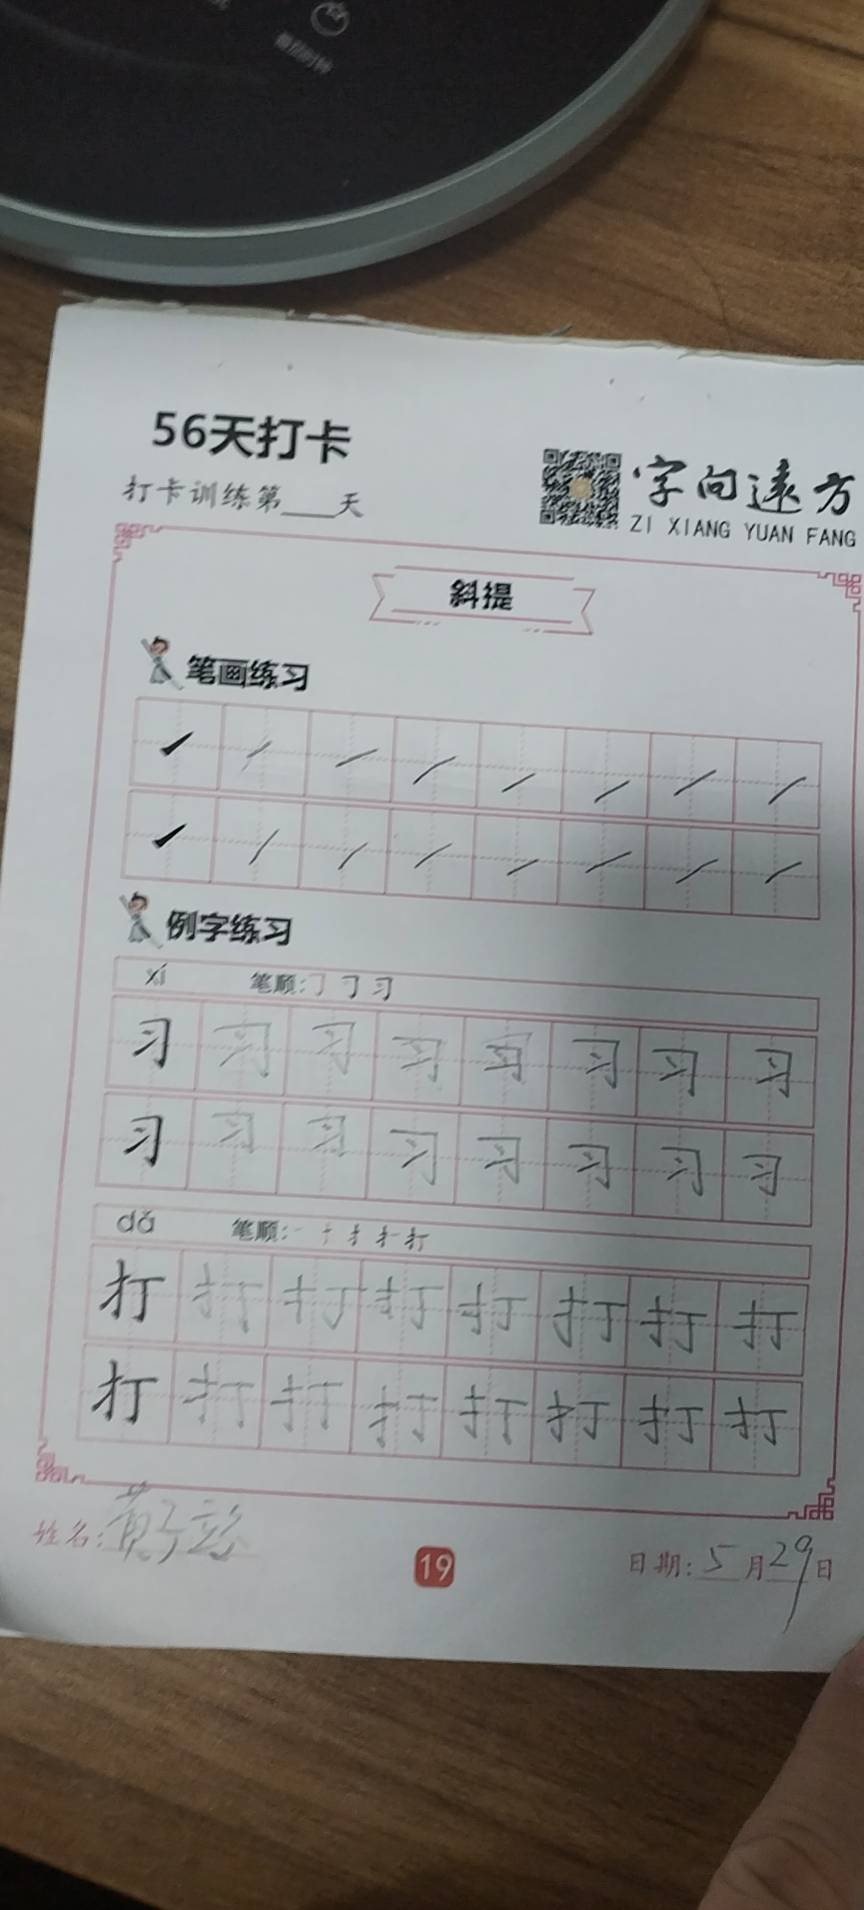 56天打卡
打卡训练第___天
字向遠方
ZI XIANG YUAN FANG
斜提
笔画练习
例字练习
xí 笔顺:
习 习 习 习 习 习 习 习
习 习 习 习 习 习 习 习
dǎ 笔顺:
打 打 打 打 打 打 打 打
打 打 打 打 打 打 打 打
姓名:黄子
19
日期:5月29日